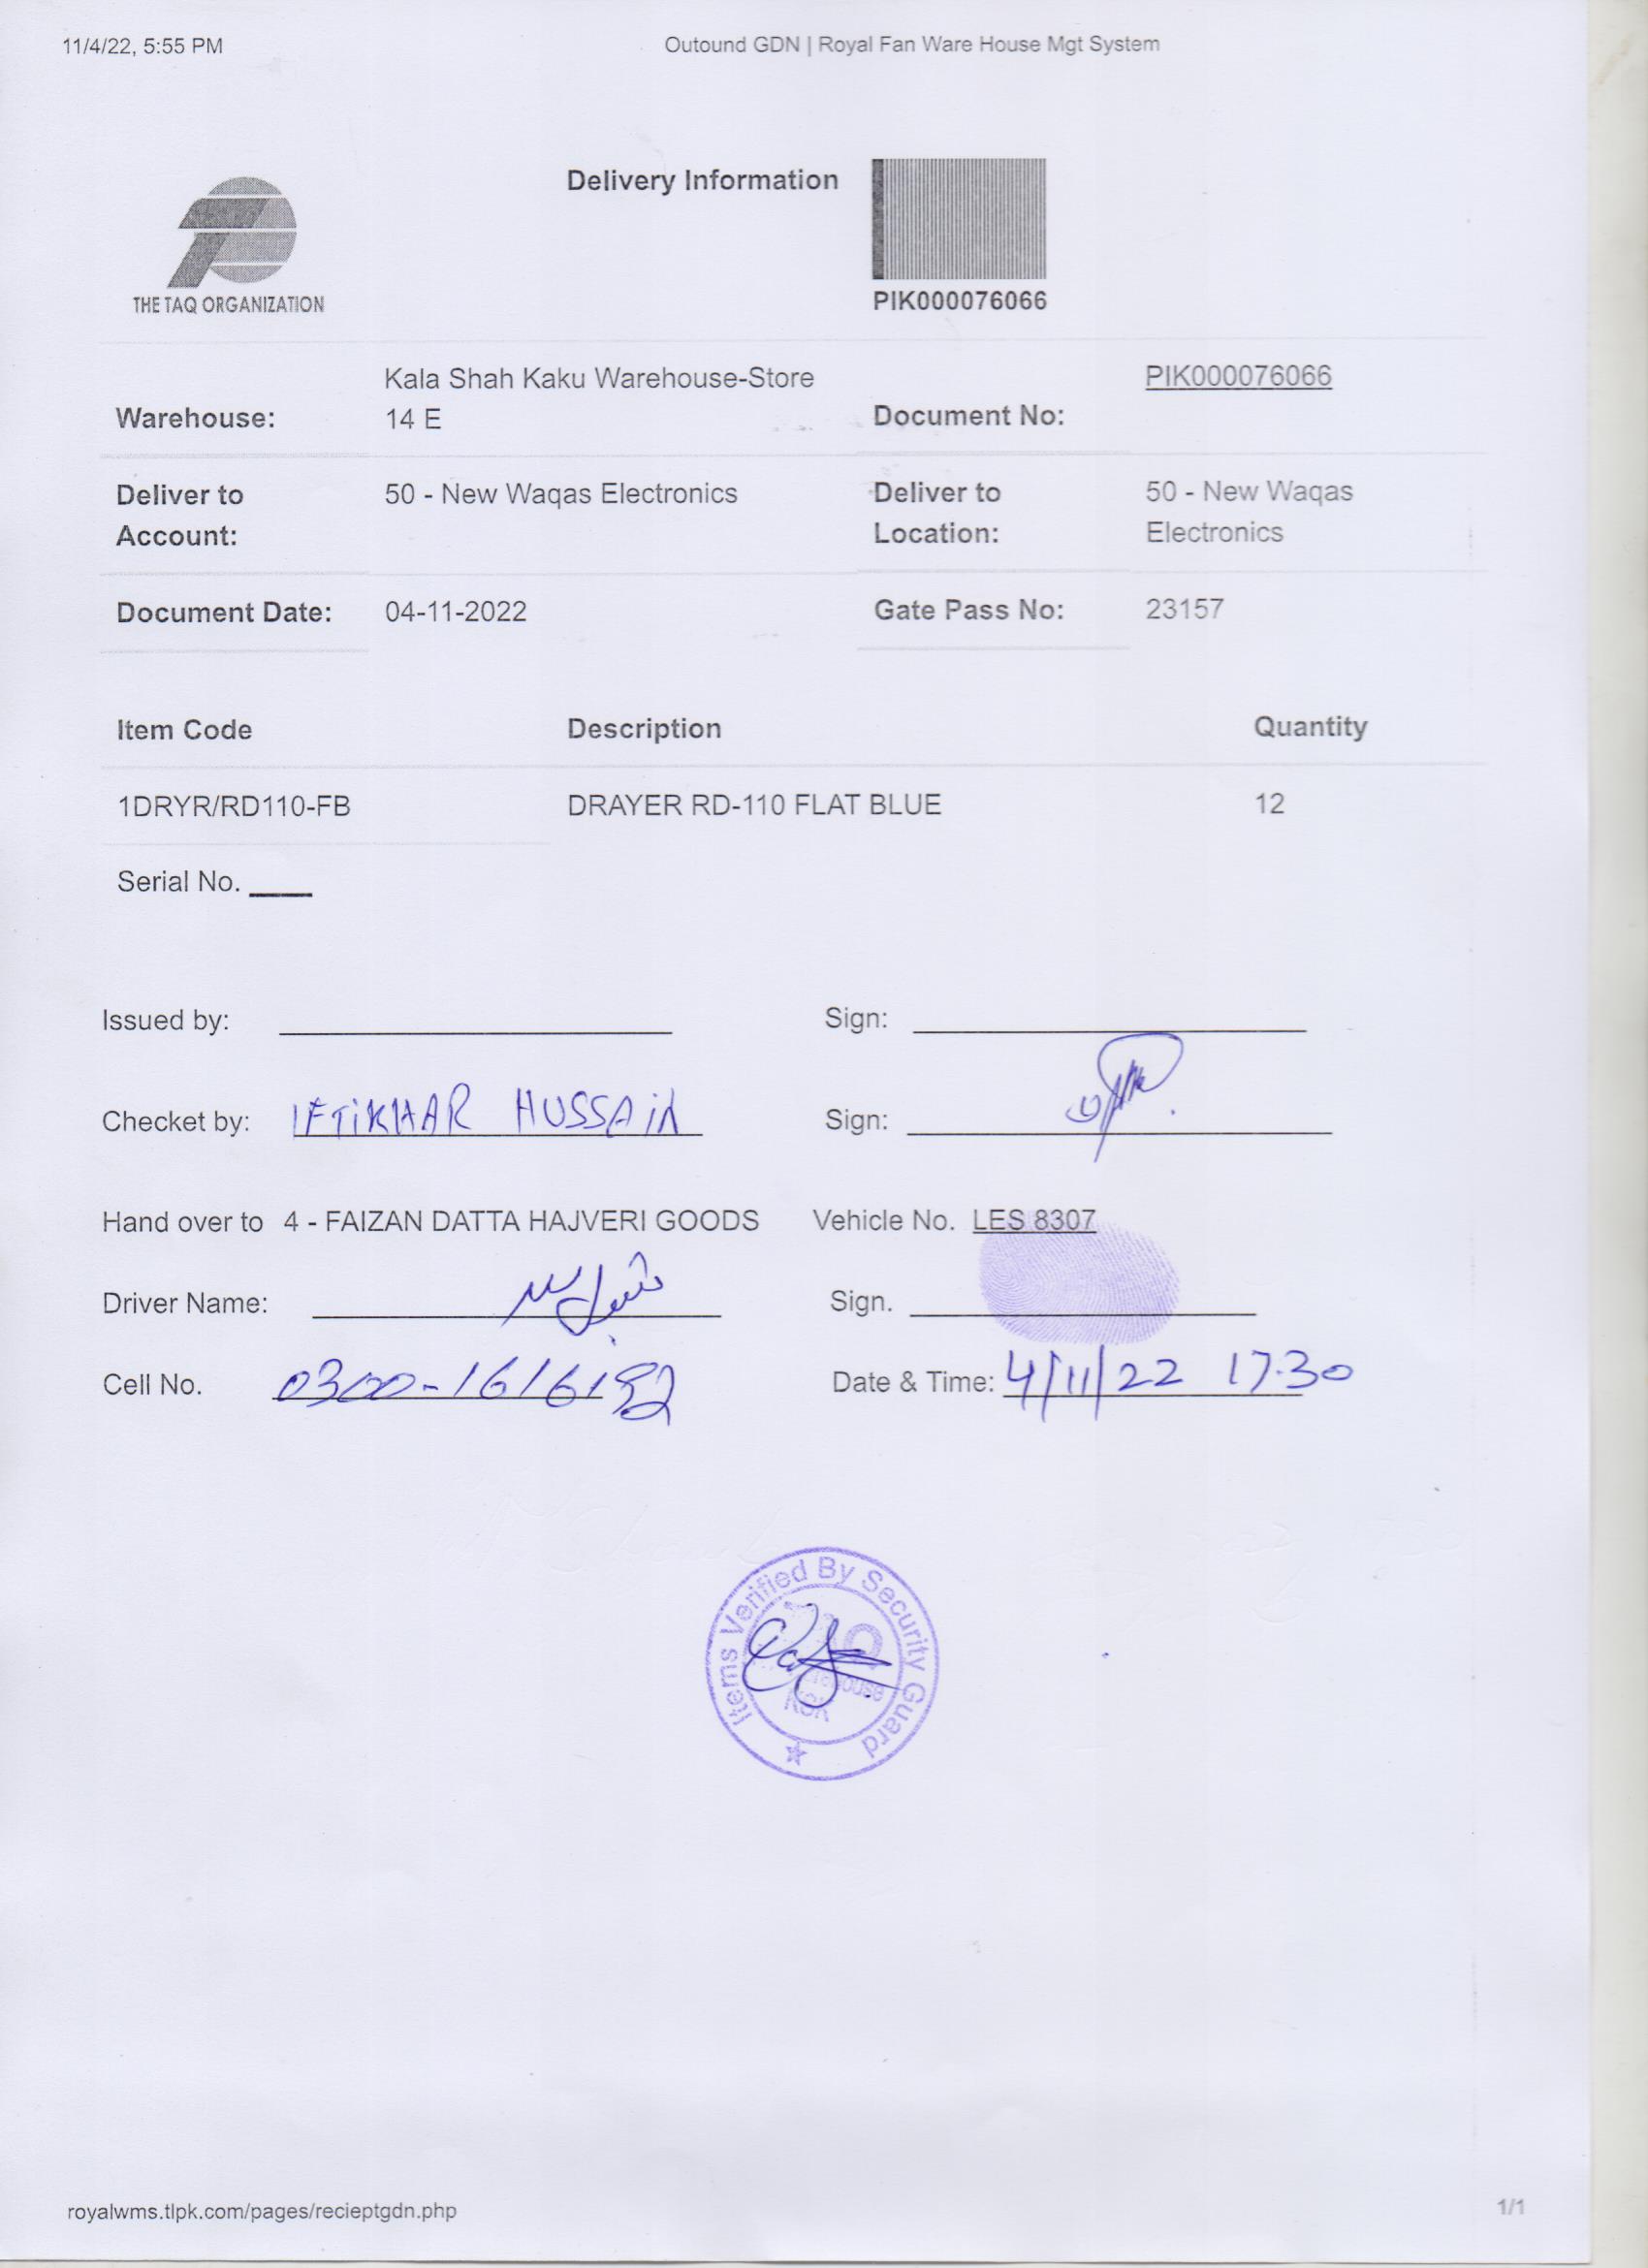 11/4/22, 5:55 PM Outound GDN | Royal Fan Ware House Mgt System
Delivery Information
THE TAQ ORGANIZATION
PIK000076066
Kala Shah Kaku Warehouse-Store PIK000076066
Warehouse: 14 E Document No:
Deliver to 50 - New Waqas Electronics Deliver to 50 - New Waqas
Account: Location: Electronics
Document Date: 04-11-2022 Gate Pass No: 23157
Item Code Description Quantity
1DRYR/RD110-FB DRAYER RD-110 FLAT BLUE 12
Serial No.
Issued by: Sign:
Checket by: IFTIKHAR HUSSAIN Sign:
Hand over to 4 - FAIZAN DATTA HAJVERI GOODS Vehicle No. LES 8307
Driver Name: Sign.
Cell No. 0300-1616192 Date & Time: 4/11/22 17:30
Items Verified By Security Guard
KSK
royalwms.tlpk.com/pages/recieptgdn.php 1/1